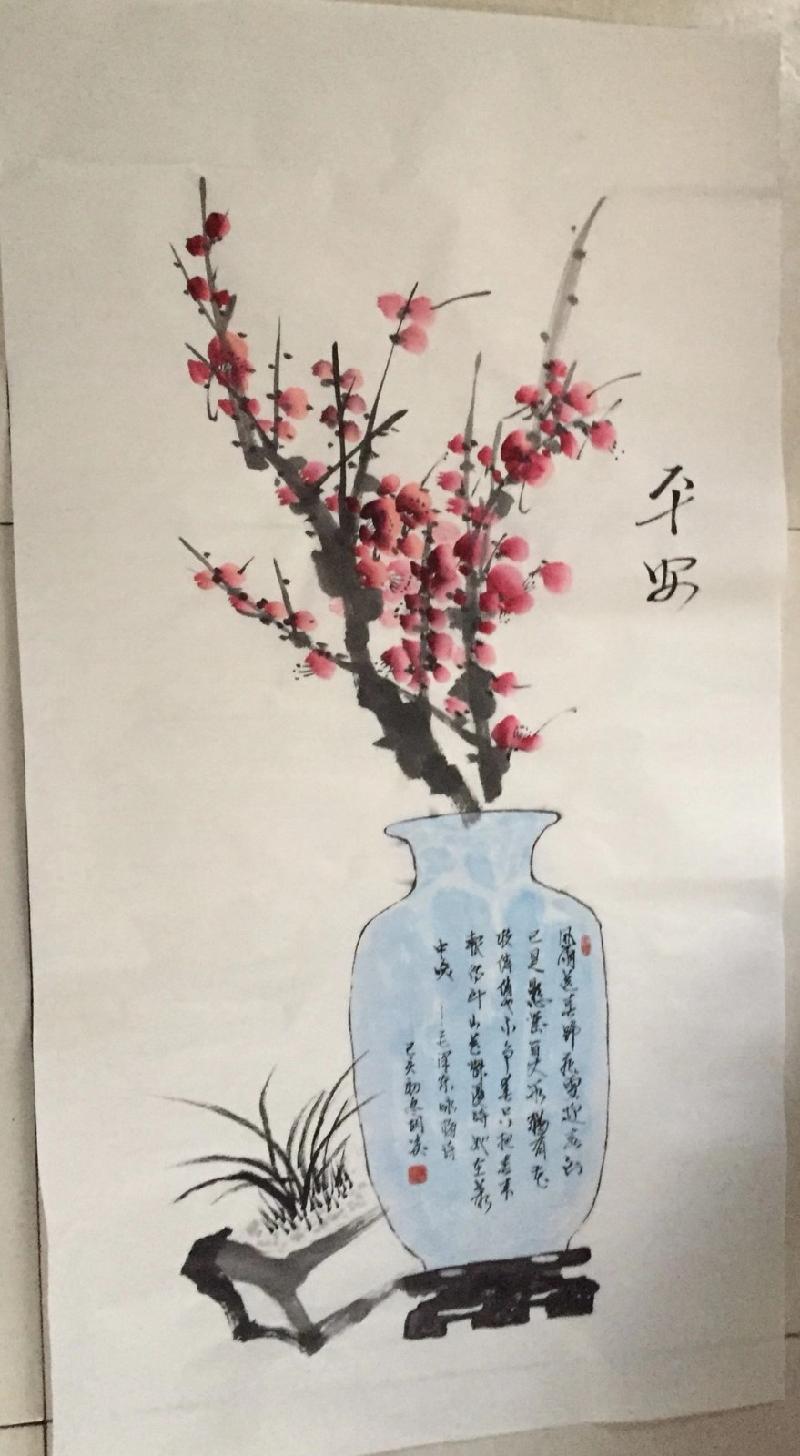 平安
风雨送春归飞雪迎春到
已是悬崖百丈冰犹有花
枝俏俏也不争春只把春来
报待到山花烂漫时她在丛
中笑 —毛泽东咏梅诗
己亥初冬